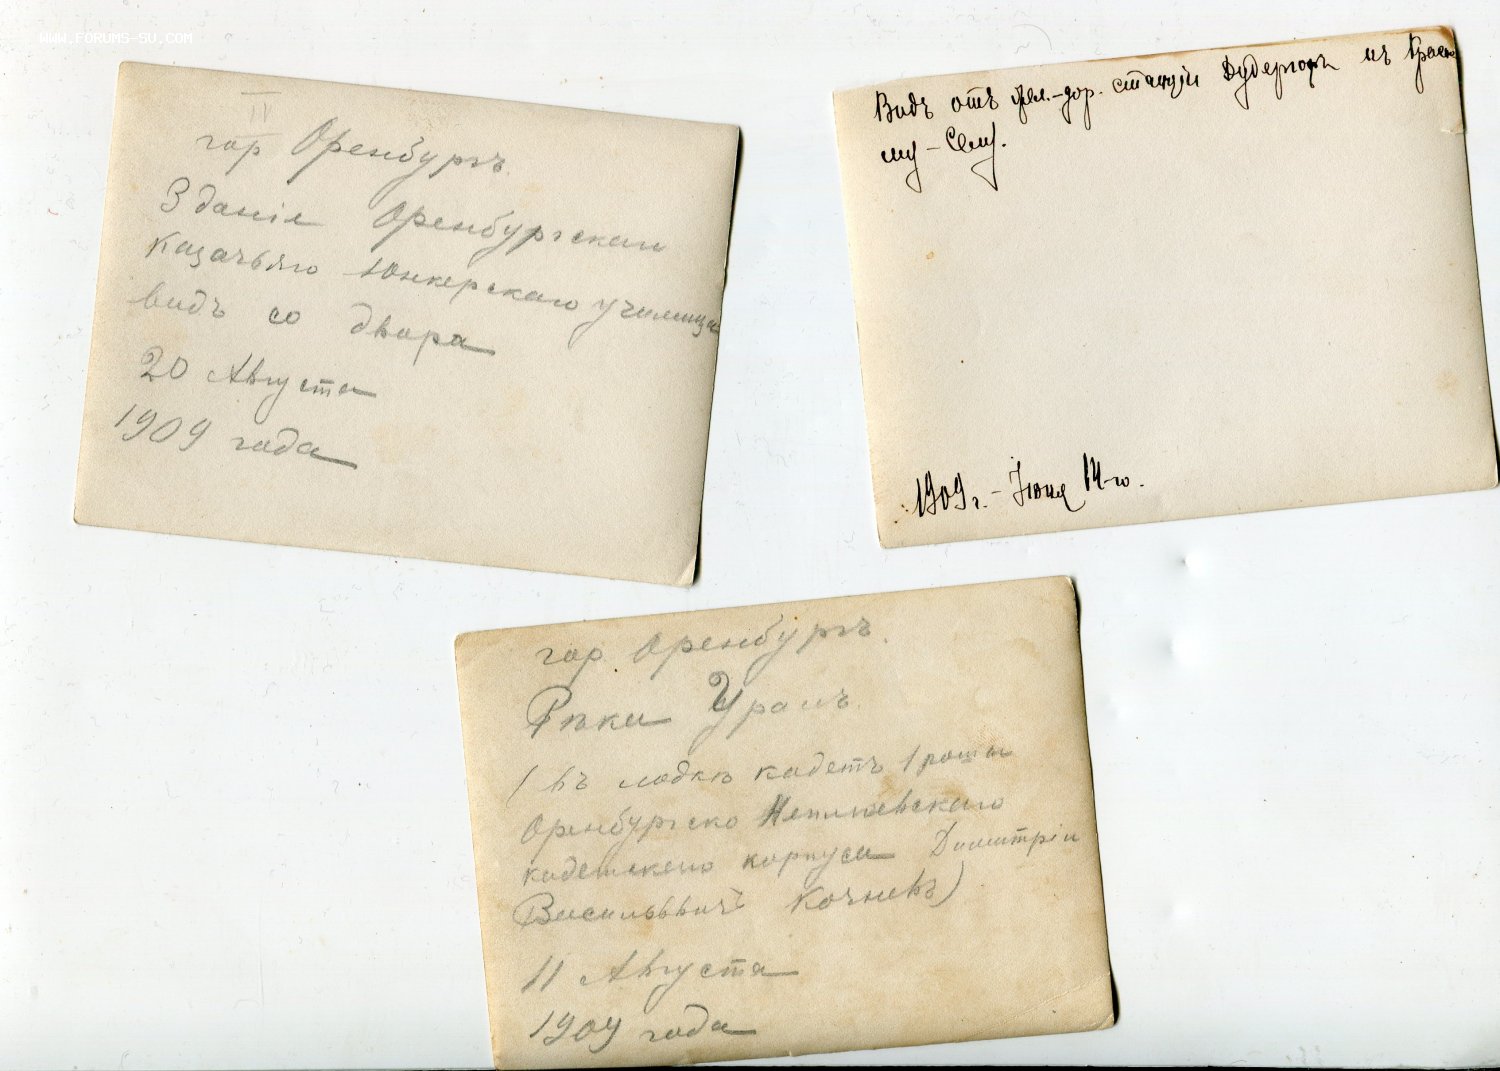 WWW.FORUMS-SU.COM
II
гор Оренбургъ.
Зданіе Оренбургскаго
Казачьяго Юнкерскаго училища
видъ со двора
20 Августа
1909 года
Видъ отъ жел.-дор. станціи Дудергофъ къ Красно-
му-Селу.
1909 г. - Іюня 14-го.
гор. Оренбургъ.
Рѣка Уралъ.
(въ лодкѣ кадетъ 1 роты
Оренбургско Неплюевскаго
кадетскаго корпуса Димитрій
Васильевичъ Кочневъ)
11 Августа
1909 года